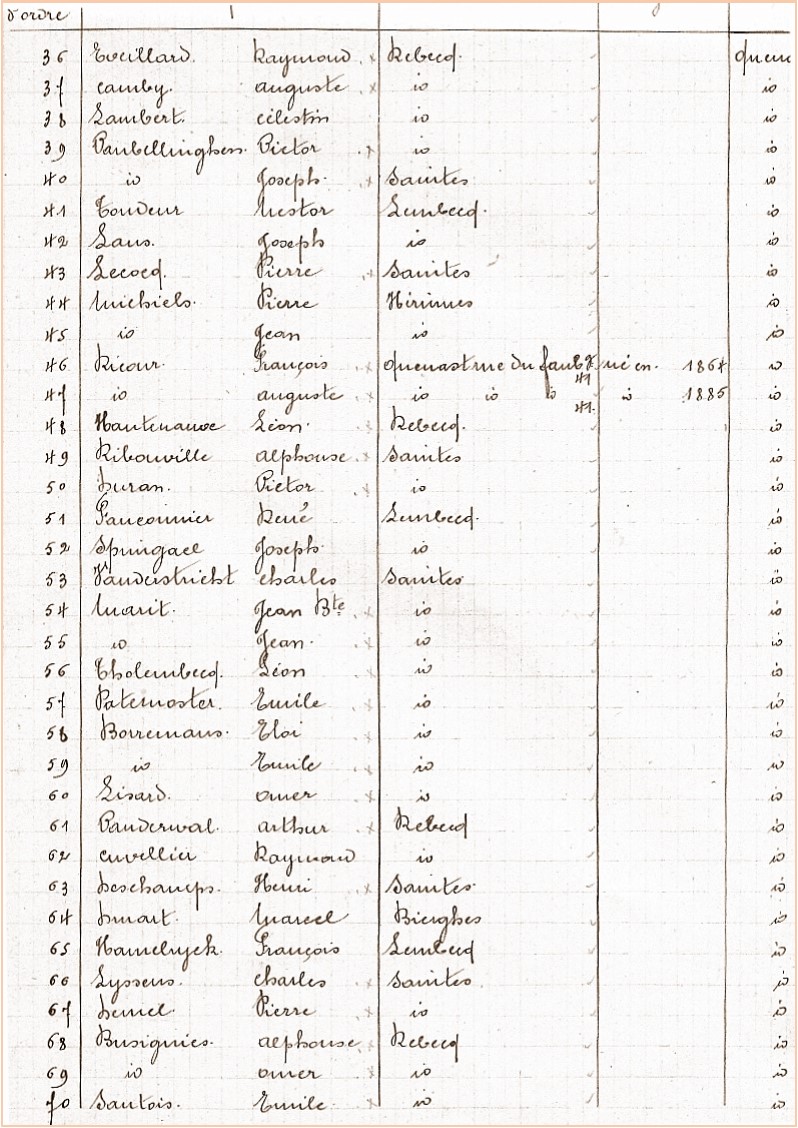 d'ordre
36 Eveillard. Raymond × Rebecq. Quen
37 Camby. Auguste × io io
38 Lambert. Célestin io io
39 Vanbellinghen. Victor × io io
40 io Joseph. × Saintes io
41 Tondeur Nestor Lembecq. io
42 Laus. Joseph io io
43 Lecocq. Pierre × Saintes io
44 Michiels. Pierre Hérinnes io
45 io Jean io io
46 Ricour. François × Quenast rue du faubg né en. 1864 io
41
47 io Auguste × io io io io 1885 io
41.
48 Hautenauve Léon. × Rebecq. io
49 Ribouville Alphonse. × Saintes io
50 Duran. Victor × io io
51 Fauconnier René Lembecq. io
52 Springael Joseph. io io
53 Vanderstricht Charles Saintes io
54 Marit. Jean Bte × io io
55 io Jean. × io io
56 Tholembecq. Léon × io io
57 Paternoster. Emile × io io
58 Borremans. Eloi × io io
59 io Emile × io io
60 Lisard. Omer × io io
61 Vanderwal. Arthur × Rebecq io
62 Cuvellier Raymond io io
63 Deschamps. Henri × Saintes. io
64 Dmart. Marcel Bierghes io
65 Hamelryck. François Lembecq io
66 Lyssens. Charles × Saintes. io
67 Demel. Pierre × io io
68 Busignies. Alphonse × Rebecq io
69 io Omer × io io
70 Santois. Emile × io io